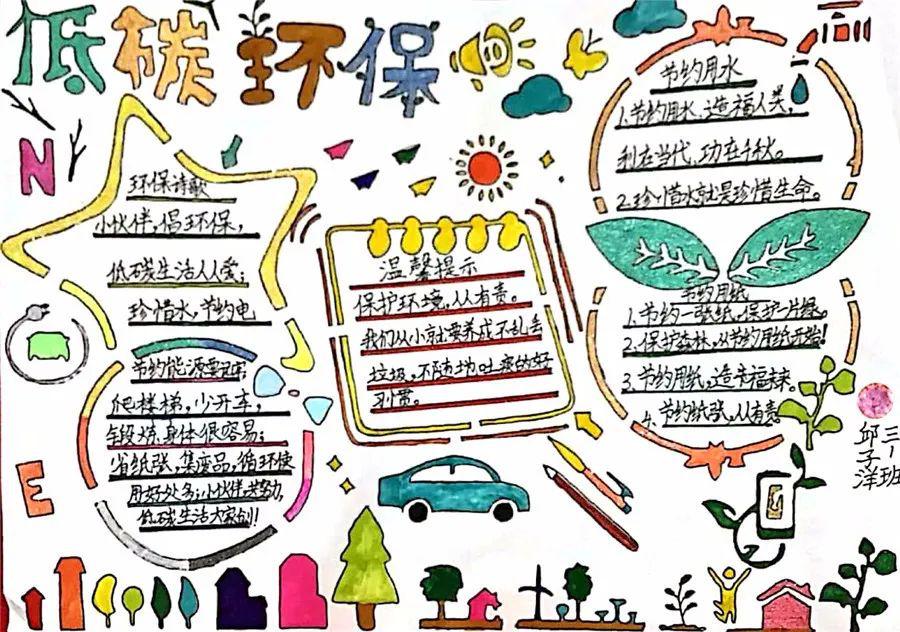 低碳环保
N
环保诗歌
小伙伴,倡环保,
低碳生活人人爱;
珍惜水,节约电
节约能源要记牢
爬楼梯,少开车,
锻炼身体很容易;
省纸张,集废品,循环使
用好处多;小伙伴来努力,
低碳生活大家创!
E
温馨提示
保护环境,人人有责。
我们从小就要养成不乱丢
垃圾,不随地吐痰的好
习惯。
节约用水
1.节约用水,造福人类,
利在当代,功在千秋。
2.珍惜水就是珍惜生命。
节约用纸
1.节约一张纸,保护一片绿。
2.保护森林,从节约用纸开始!
3.节约用纸,造幸福未来。
4.节约纸张,人人有责
三一班
邱子洋